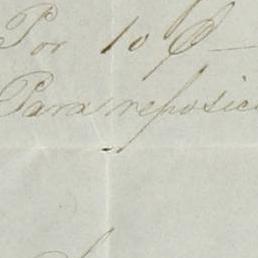 Por 10 ₱
Para reposici